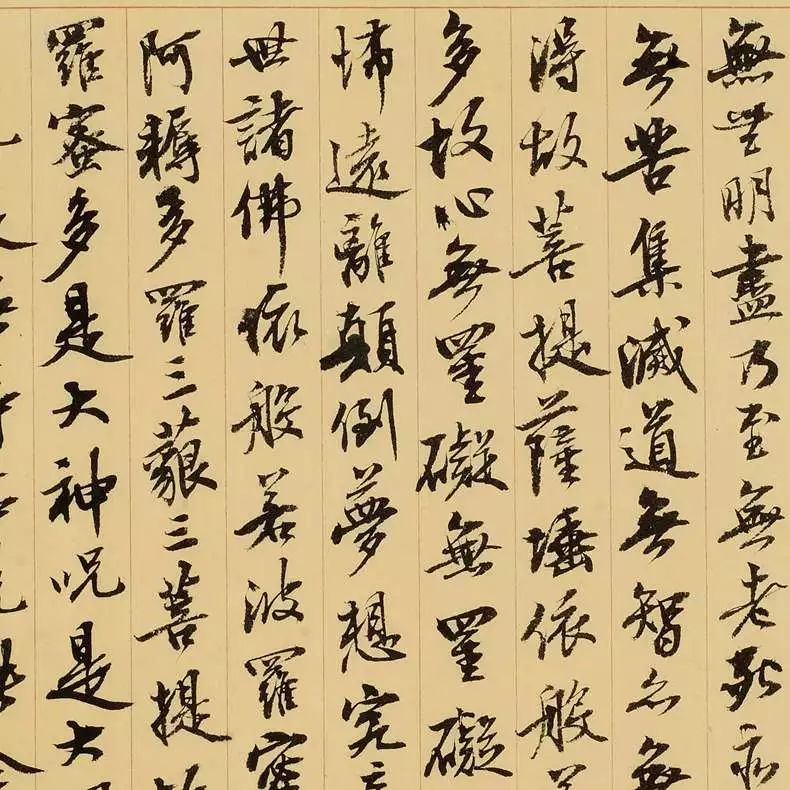 無無明盡乃至無老死亦
無苦集滅道無智亦無
得故菩提薩埵依般若
多故心無罣礙無罣礙
怖遠離顛倒夢想究
世諸佛依般若波羅蜜
阿耨多羅三藐三菩提
羅蜜多是大神呪是大